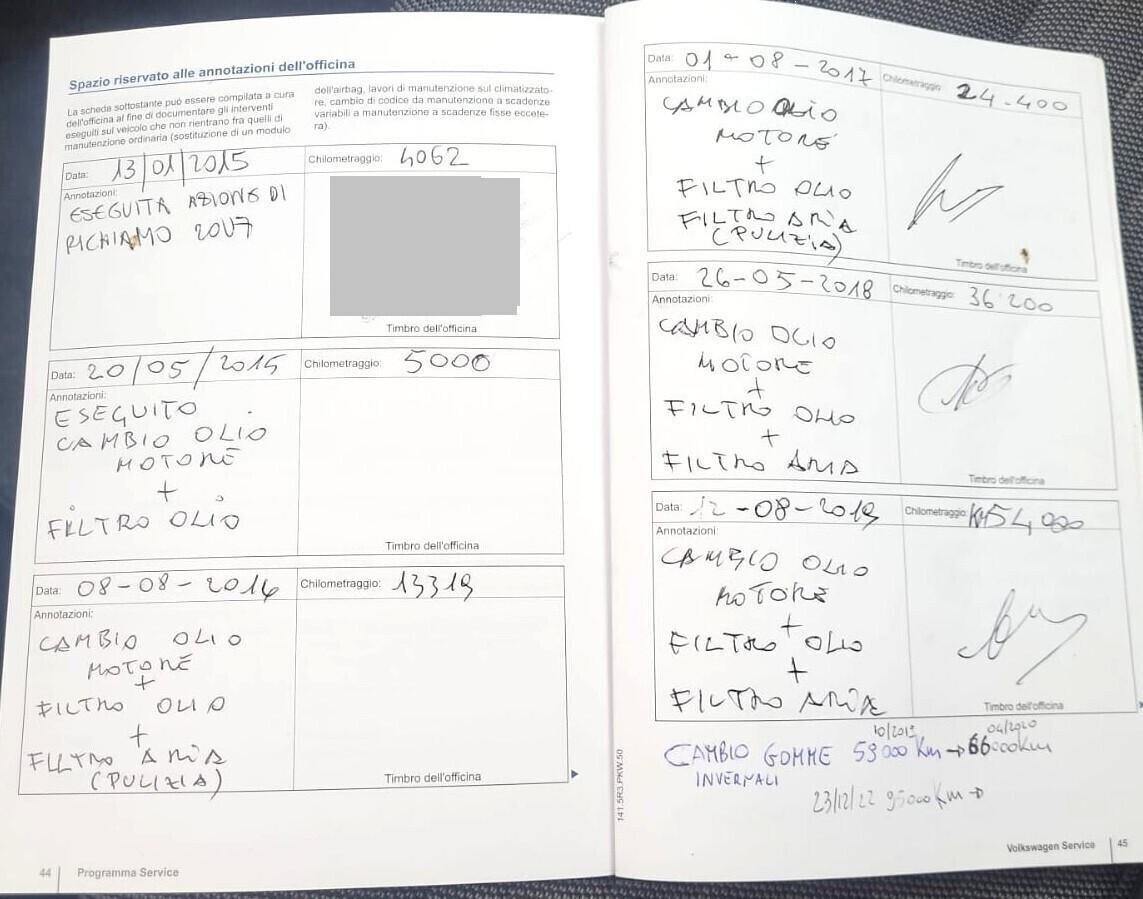 Spazio riservato alle annotazioni dell'officina
La scheda sottostante può essere compilata a cura
dell'officina al fine di documentare gli interventi
eseguiti sul veicolo che non rientrano fra quelli di
manutenzione ordinaria (sostituzione di un modulo
dell'airbag, lavori di manutenzione sul climatizzato-
re, cambio di codice da manutenzione a scadenze
variabili a manutenzione a scadenze fisse eccete-
ra).
Data: 13/01/2015 Chilometraggio: 4062
Annotazioni:
ESEGUITA AZIONE DI
RICHIAMO 20U7
Timbro dell'officina
Data: 20/05/2015 Chilometraggio: 5000
Annotazioni:
ESEGUITO
CAMBIO OLIO
MOTORE
+
FILTRO OLIO
Timbro dell'officina
Data: 08-08-2016 Chilometraggio: 13319
Annotazioni:
CAMBIO OLIO
MOTORE
+
FILTRO OLIO
+
FILTRO ARIA
(PULIZIA)
Timbro dell'officina
44 Programma Service
Data: 01-08-2017 Chilometraggio: 24.400
Annotazioni:
CAMBIO OLIO
MOTORE
+
FILTRO OLIO
FILTRO ARIA
(PULIZIA)
Timbro dell'officina
Data: 26-05-2018 Chilometraggio: 36200
Annotazioni:
CAMBIO OLIO
MOTORE
+
FILTRO OLIO
+
FILTRO ARIA
Timbro dell'officina
Data: 12-08-2019 Chilometraggio: KM54,000
Annotazioni:
CAMBIO OLIO
MOTORE
+
FILTRO OLIO
+
FILTRO ARIA
Timbro dell'officina
10/2019 04/2020
CAMBIO GOMME 59000 Km → 66000Km
INVERNALI
23/12/22 95000 Km →
141.5R3.PKW.50
Volkswagen Service 45